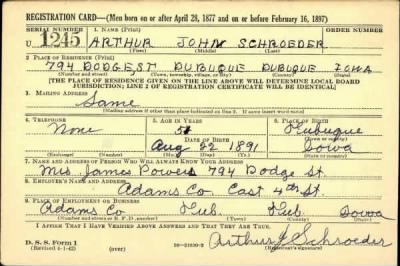 REGISTRATION CARD—(Men born on or after April 28, 1877 and on or before February 16, 1897)
SERIAL NUMBER 1. NAME (Print) ORDER NUMBER
U 1245 ARTHUR JOHN SCHROEDER
(First) (Middle) (Last)
2. PLACE OF RESIDENCE (Print)
794 DODGE ST DUBUQUE DUBUQUE IOWA
(Number and street) (Town, township, village, or city) (County) (State)
[THE PLACE OF RESIDENCE GIVEN ON THE LINE ABOVE WILL DETERMINE LOCAL BOARD
JURISDICTION; LINE 2 OF REGISTRATION CERTIFICATE WILL BE IDENTICAL]
3. MAILING ADDRESS
Same
[Mailing address if other than place indicated on line 2. If same insert word same]
4. TELEPHONE 5. AGE IN YEARS 6. PLACE OF BIRTH
None 51 Dubuque
DATE OF BIRTH (Town or county)
Aug 22 1891 Iowa
(Exchange) (Number) (Mo.) (Day) (Yr.) (State or country)
7. NAME AND ADDRESS OF PERSON WHO WILL ALWAYS KNOW YOUR ADDRESS
Mrs James Powers 794 Dodge St.
8. EMPLOYER'S NAME AND ADDRESS
Adams Co. East 4th St.
9. PLACE OF EMPLOYMENT OR BUSINESS
Adams Co Dub. Dub. Iowa
(Number and street or R. F. D. number) (Town) (County) (State)
I AFFIRM THAT I HAVE VERIFIED ABOVE ANSWERS AND THAT THEY ARE TRUE.
D. S. S. Form 1 Arthur J Schroeder
(Revised 4-1-42) (over) (Registrant's signature)